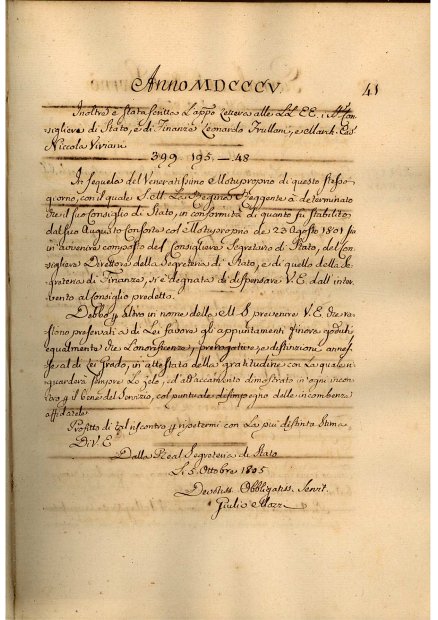 Anno MDCCCV.
41
Inoltre è stata scritta l'app.o Lettera alle LL. EE. il Sig. Con-
sigliere di Stato, e di Finanze Leonardo Frullani, e March. Cav.
Niccola Viviani
399 195 — 48
In sequela del Veneratissimo Motuproprio di questo stesso
giorno, con il quale S. M. La Regina Reggente à determinato
che il suo Consiglio di Stato, in conformità di quanto fu stabilito
dal suo Augusto Consorte col Motuproprio de 22 Agosto 1801 sia
in avvenire composto del Consigliere Segretario di Stato, del Con-
sigliere Direttore della Segreteria di Stato, e di quello della Se-
greteria di Finanze, si è degnata di dispensare V. E. dall'inter-
vento al Consiglio predetto.
Debbo per altro in nome della M. S. prevenire V. E. che re-
stono preservati a di Lei favore gli appuntamenti finora goduti
equalmente che L'onorificenze, prerogative, e distinzioni annes-
se al di Lei Grado, in attestato della gratitudine con La quale ri-
guarderà sempre Lo zelo, ed attaccamento dimostrato in ogni incon-
tro per il bene del Servizio, col puntuale disimpegno delle incombenze
affidatele.
Profitto di tal riscontro per ripetermi con La più distinta stima
Di V. E.
Dalla Real Segreteria di Stato
Li 5. Ottobre 1805
Devotiss. Obbligatiss. Servit.
Giulio Mozzi